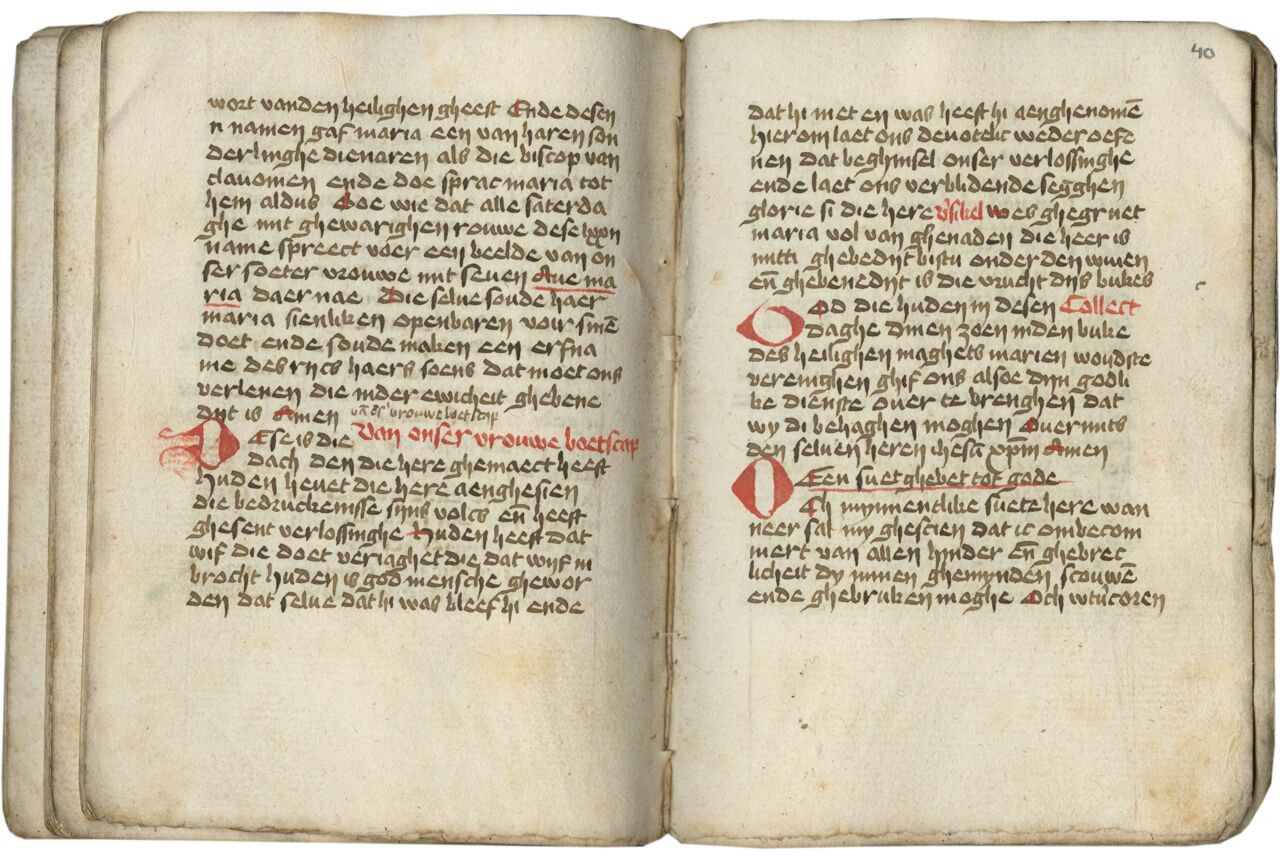 wort vanden heilighen gheest Ende desen
n namen gaf maria een van haren son
derlinghe dienaren als die biscop van
clauomen ende doe sprac maria tot
hem aldus Soe wie dat alle saterda
ghe mit ghewarighen rouwe dese lxxij
name spreect voer een beelde van on
ser soeter vrouwe mit seuen Aue ma
ria daer nae Die selue soude haer
maria sienliken openbaren voir sinē
doet ende soude maken een erfna
me des rijcs haers soens dat moet ons
verlenen die inder ewicheit ghebene
dijt is Amen
Van onser vrouwe boetscap
Ese is die
dach den die here ghemaect heeft
huden heuet die here aenghesien
die bedruckenisse sijns volcs eñ heeft
ghesent verlossinghe Huden heeft dat
wif die doet veriaghet die dat wijf in
brocht huden is god mensche ghewor
den dat selue dat hi was bleef hi ende
40
dat hi niet en was heeft hi aenghenomē
hierom laet ons deuotelic weder oefe
nen dat beghinsel onser verlossinghe
ende laet ons verblidende segghen
glorie si die here v'sikel wes ghegruet
maria vol van ghenaden die heer is
mitti ghebedijt bistu onder den wiuen
eñ ghebenedijt is die vrucht dijs bukes
God die huden in desen Collect
daghe dinen zoen inden buke
des heilighen maghets marien woudste
verenighen ghif ons alsoe dijn godli
ke dienste ouer te brenghen dat
wy di behaghen moghen Ouermits
den seluen heren ihesū xpm Amen
Een suet ghebet tot gode
Och mynnentlike suete here wan
neer sal my ghescien dat ic ombecom
mert van allen hinder eñ ghebrec
licheit dy minen ghemynden scouwē
ende ghebruken moghe Och wtucoren